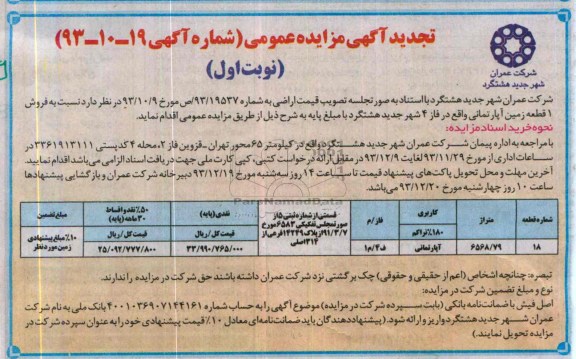 تجدید آگهی مزایده عمومی (شماره آگهی ۱۹-۱۰-۹۳)
(نوبت اول)
شرکت عمران
شهر جدید هشتگرد
شرکت عمران شهر جدید هشتگرد با استناد به صورتجلسه تصویب قیمت اراضی به شماره ۹۳/۱۹۵۳۷/ص مورخ ۹۳/۱۰/۹ در نظر دارد نسبت به فروش
۱ قطعه زمین آپارتمانی واقع در فاز ۴ شهر جدید هشتگرد با مبلغ پایه به شرح ذیل از طریق مزایده عمومی اقدام نماید.
نحوه خرید اسناد مزایده:
با مراجعه به اداره پیمان شرکت عمران شهر جدید هشتگرد واقع در کیلومتر ۶۵ محور تهران ـ قزوین فاز ۲، محله ۴ کدپستی ۳۳۶۱۹۱۳۱۱۱ در
ساعات اداری از مورخ ۹۳/۱۱/۲۹ لغایت ۹۳/۱۲/۹ در مقابل ارائه درخواست کتبی، کپی کارت ملی جهت دریافت اسناد الزامی می‌باشد اقدام نمایید.
آخرین مهلت و محل تحویل پاکت‌های پیشنهاد قیمت تا ساعت ۱۴ روز سه‌شنبه مورخ ۹۳/۱۲/۱۹ دبیرخانه شرکت عمران و بازگشایی پیشنهادها
ساعت ۱۰ روز چهارشنبه مورخ ۹۳/۱۲/۲۰ می‌باشد.
شماره قطعه
متراژ
کاربری
۱۸۰٪ تراکم
فاز/م
قسمتی از شماره ثبتی ۵ از
صورتمجلس تفکیکی ۶۵۸۳ مورخ
۹۱/۳/۷ از پلاک ۱۴۲۴۹ فرعی از
۳۱۴ اصلی
نقدی (پایه)
قیمت کل/ریال
۵۰٪ نقد و اقساط
۳۰ ماهه (پایه)
قیمت کل/ریال
مبلغ تضمین
۱۸
۶۵۶۸/۷۹
آپارتمانی
ف۴/م۱
۳۳/۹۹۰/۷۶۵/۰۰۰
۲۵/۰۹۲/۷۷۷/۸۰۰
۱۰٪ مبلغ پیشنهادی
زمین مورد نظر
تبصره: چنانچه اشخاص (اعم از حقیقی و حقوقی) چک برگشتی نزد شرکت عمران داشته باشند حق شرکت در مزایده را ندارند.
نوع و مبلغ تضمین شرکت در مزایده:
اصل فیش یا ضمانت‌نامه بانکی (بابت سپرده شرکت در مزایده) موضوع آگهی را به حساب شماره ۴۰۰۱۰۳۶۹۰۷۱۴۴۱۶۱ بانک ملی به نام شرکت
عمران شهر جدید هشتگرد واریز و ارائه شود. (پیشنهاددهندگان باید ضمانت‌نامه‌ای معادل ۱۰٪ قیمت پیشنهادی خود را به عنوان سپرده شرکت در
مزایده تحویل نمایند.)